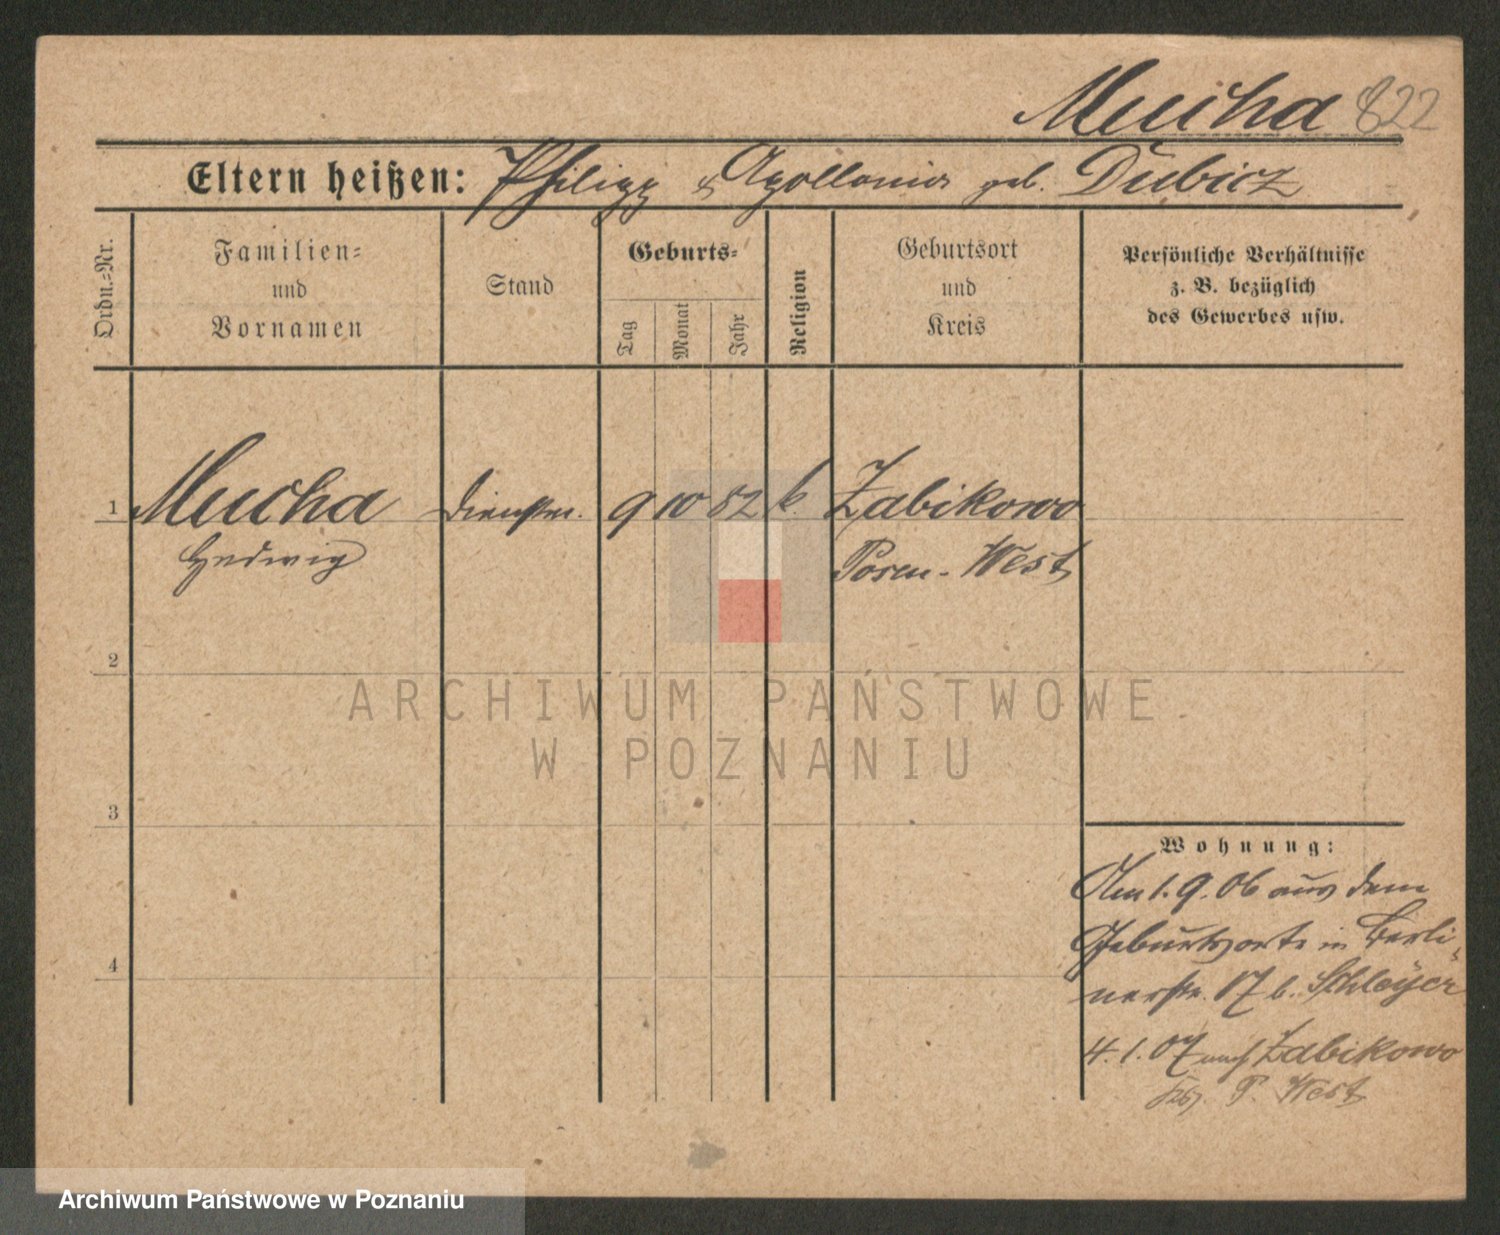 Mucha 822
Eltern heißen: Philipp & Apollonia geb. Dubicz
Ordn.-Nr.
Familien-
und
Vornamen
Stand
Geburts-
Tag
Monat
Jahr
Religion
Geburtsort
und
Kreis
Persönliche Verhältnisse
z. B. bezüglich
des Gewerbes usw.
1 Mucha Dienstm. 9 10 82 k. Zabikowo
Hedwig Posen-West
2
ARCHIWUM PAŃSTWOWE
W POZNANIU
3
Wohnung:
Am 1.9.06 aus dem
Geburtsorte in Berli-
4
nerstr. 17 b. Schleyer
4.1.07 nach Zabikowo
P. West
Archiwum Państwowe w Poznaniu